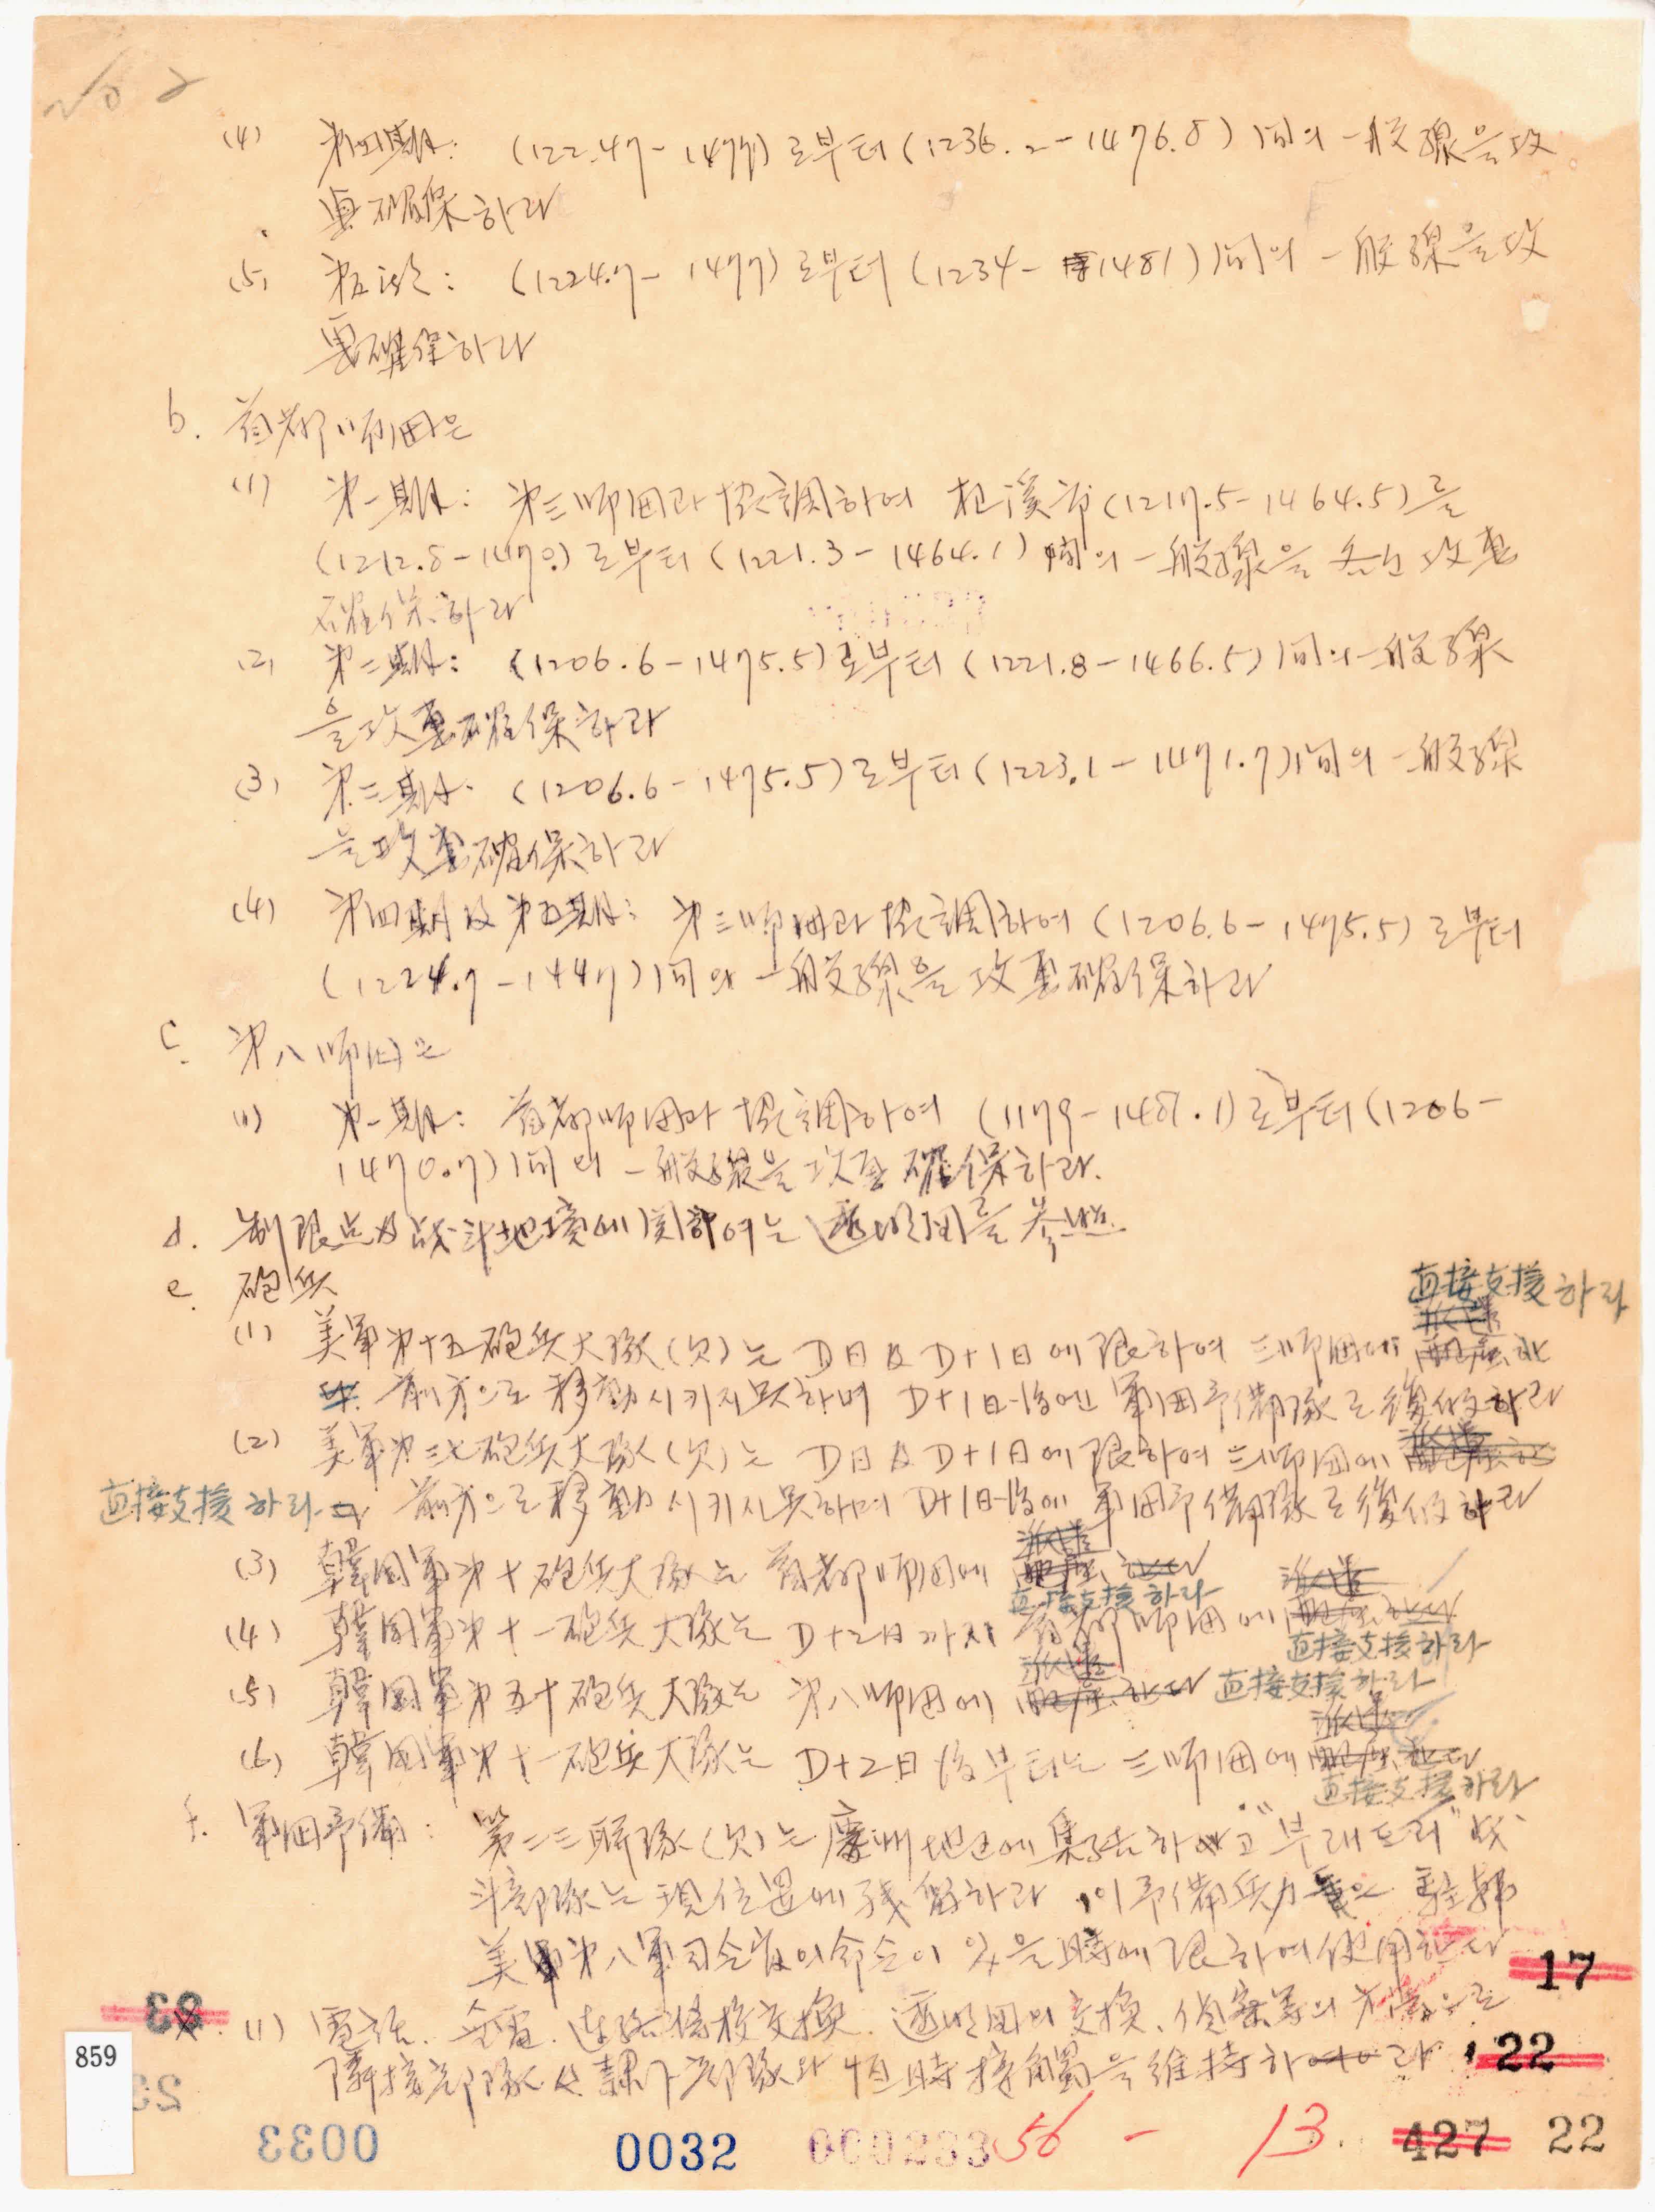 No 2
(4) 第四期: (122.47-1477)로부터(1236.2-1476.8)間의 一般線을攻
奧確保하라
(5) 第五次: (1224.7-1477)로부터 (1234-1481)間의 一般線을攻
奧確保하라
b. 首都師団은
(1) 第一期: 第三師団과 協調하여 杞溪市(1217.5-1464.5)를
(1212.8-1470)로부터(1221.3-1464.1)間의 一般線을 攻奧
確保하라
(2) 第二期: (1206.6-1475.5)로부터(1221.8-1466.5)間의 一般線
을攻奧確保하라
(3) 第三期. (1206.6-1475.5)로부터(1223.1-1471.7)間의 一般線
을攻奧確保하라
(4) 第四期及第五期: 第三師団과 協調하여(1206.6-1475.5)로부터
(1224.7-1447)間의 一般線을 攻奧確保하라
c. 第八師団은
(1) 第一期: 首都師団과 協調하여 (1179-1481.1)로부터(1206-
1470.7)間의 一般線을 攻奧確保하라.
d. 制限点及战斗地境에関하여는 透明図를 参照.
e. 砲兵
直接支援하라
(1) 美軍第十五砲兵大隊(欠)는 D日及D+1日에限하여 三師団에
前方으로 移動시키지못하며 D+1日后에는 軍団予備隊로復仮하라
(2) 美軍第三七砲兵大隊(欠)는 D日及D+1日에限하여 三師団에
直接支援하라. 前方으로移動시키지못하며 D+1日后에 軍団予備隊로復仮하라
(3) 韓国軍第十砲兵大隊는 首都師団에
直接支援하라
(4) 韓国軍第十一砲兵大隊는 D+2日까지 首都師団에
直接支援하라
(5) 韓国軍第五十砲兵大隊는 第八師団에 直接支援하라
(6) 韓国軍第十一砲兵大隊는 D+2日后부터는 三師団에
直接支援하라
f. 軍団予備: 第二三聯隊(欠)는 慶州地区에集結하고 "부래도리" 战
斗部隊는 現位置에残留하라. 이予備兵力은 駐韓
美軍第八軍司令官의命令이 있을時에限하여使用한다
17
83 (1) 電話. 無電. 連絡將校交換. 透明図의交換. 偵察等의方法으로
隣接部隊及隷下部隊와 恒時接觸을維持하라 22
859
23
0033 0032 000233 56 - 13. 427 22